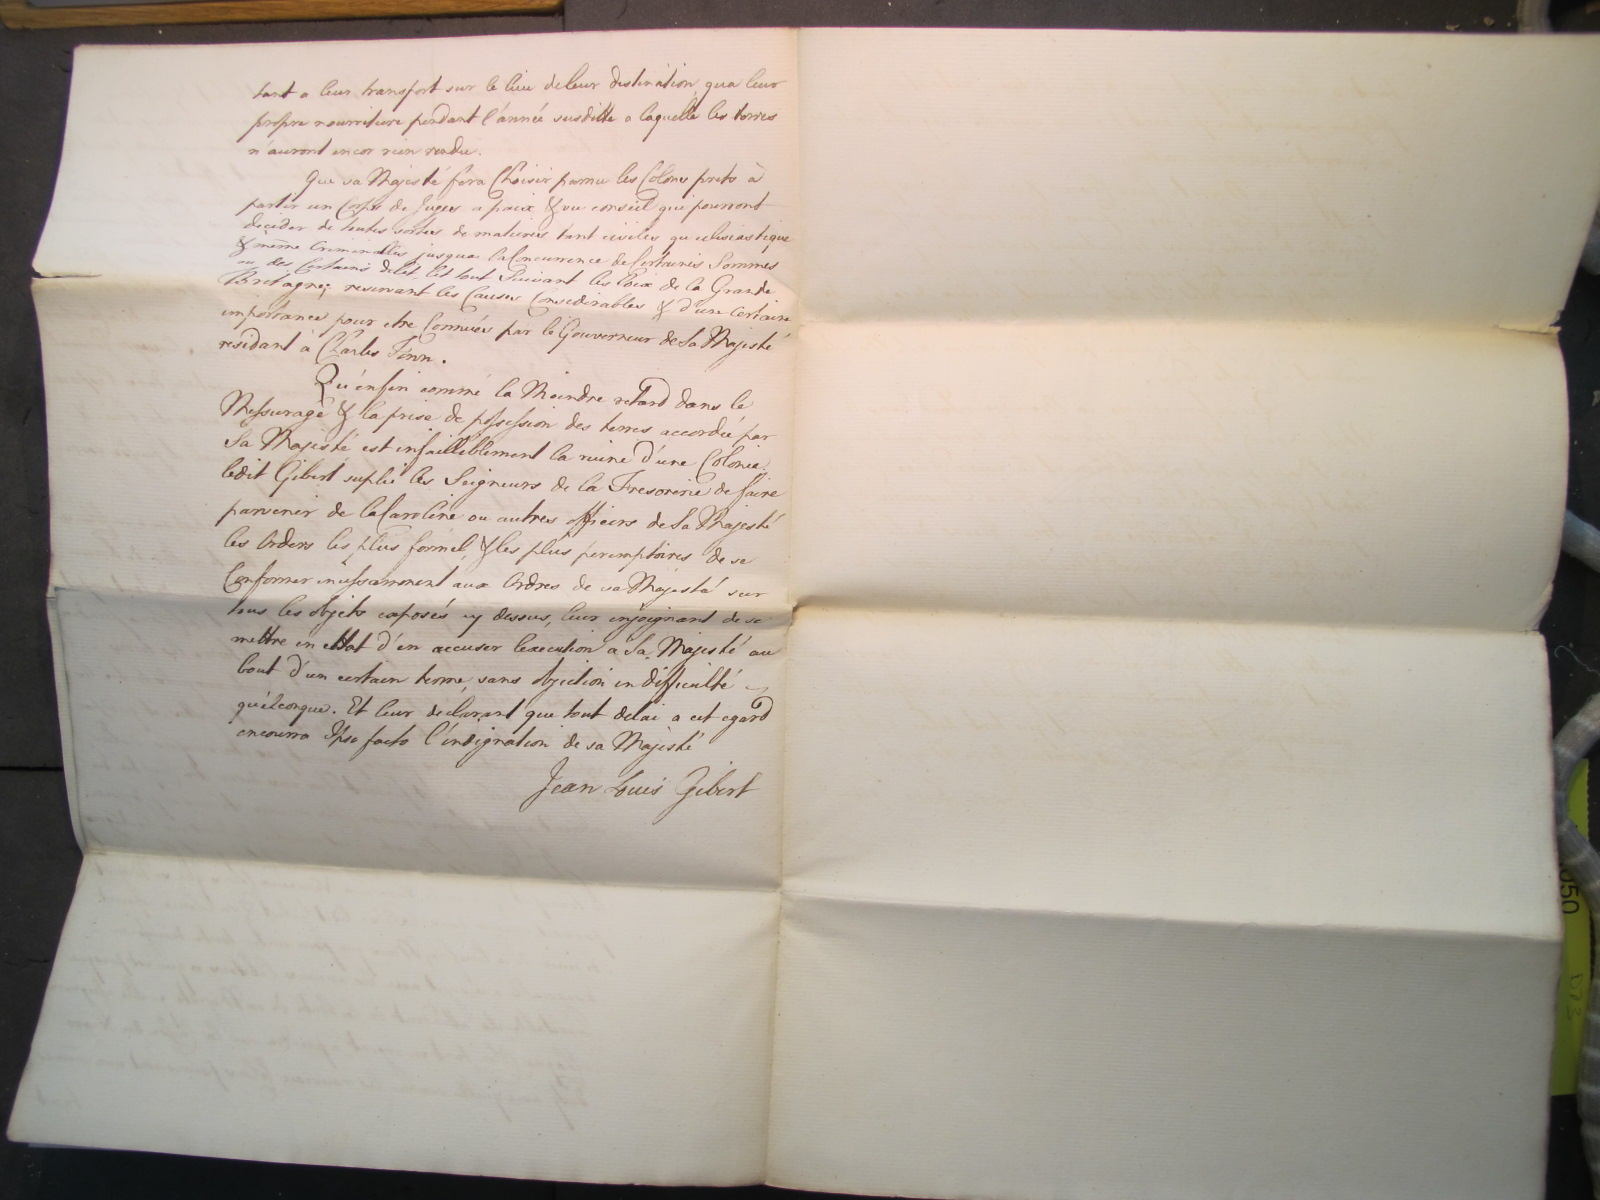 tant a leur transport sur le lieu de leur destination, qua leur
propre nourriture pendant l'année susditte a laquelle les terres
n'auront encor rien rendu.
Que sa Majesté fera Choisir parmi les Colons prets à
partir un Corps de Juges a paix & ou conseil que pouront
decider de toutes sortes de matieres tant civiles qu eclisiastique
& même Criminelles jusqua la Concurrence de Certaines Sommes
ou des Certains delit. Let tout Suivant les Loix de la Grande
Bretagne; reservant les Causes Considerables & d'une Certaine
importance pour etre Connuées par le Gouverneur de Sa Majesté
residant à Charles Tonn.
Qu'enfin commé la Moindre retard dans le
Messuragé & la prise de possession des terres accordée par
Sa Majesté est infailliblement la ruine d'une Colonie.
ledit Gibert suplie les Seigneurs de la Tresorerie de faire
parvenir de la Caroline ou autres officiers de Sa Majesté
les Orders les plus formel, & les plus peremptoires de se
Conformer incessamment aux Ordres de sa Majesté sur
tous les objets exposés cy dessus, leur injoignant de se
mettre en ettat d'en accuser l'execution a Sa Majesté au
bout d'un certain terme, sans objection in difficulté
quelconque. Et leur declarant que tout delai a cet egard
encourra Ipso facto l'indignation de sa Majesté
Jean Louis Gibert
050